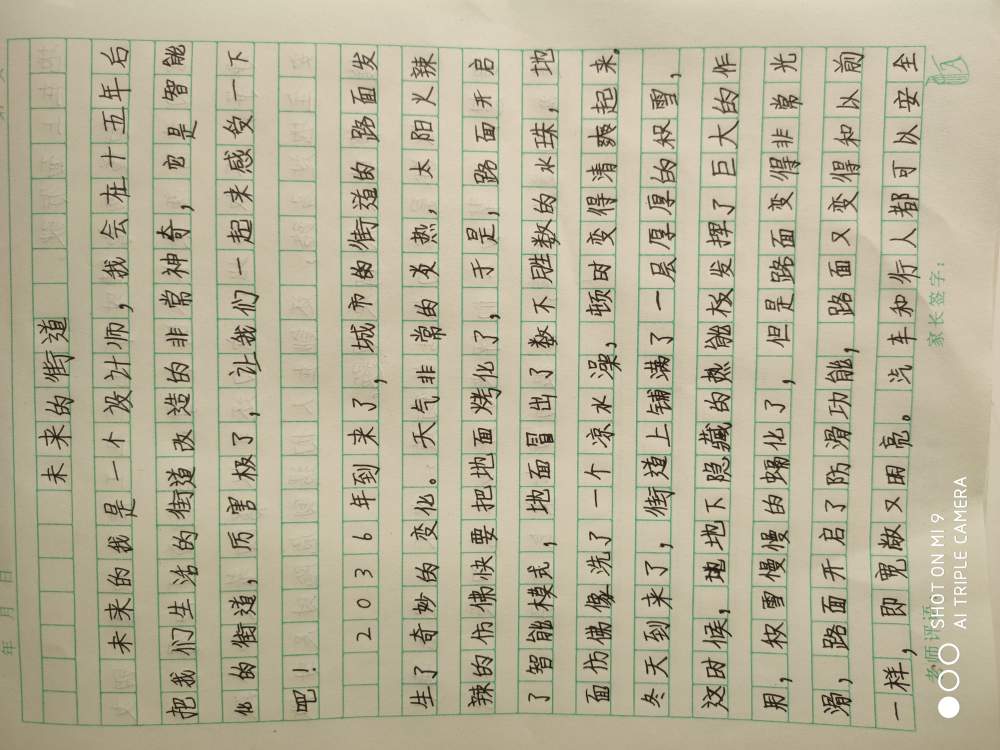 年 月 日
未来的街道
未来的我是一个设计师，我会在十五年后
把我们生活的街道改造的非常神奇，它是智能
化的街道，厉害极了，让我们一起来感受一下
吧！
2036年到来了，城市的街道的路面发
生了奇妙的变化。天气非常的炎热，太阳火辣
辣的仿佛快要把地面烤化了，于是，路面开启
了智能模式，地面冒出了数不胜数的水珠，地
面仿佛像洗了一个凉水澡，顿时变得清爽起来。
冬天到来了，街道上铺满了一层厚厚的积雪，
这时候，地地下隐藏的热能板发挥了巨大的作
用，积雪慢慢的融化了，但是路面变得非常光
滑，路面开启了防滑功能，路面又变得和以前
一样，即宽敞又明亮。汽车和行人都可以安全
老师评语
家长签字：
SHOT ON MI 9
AI TRIPLE CAMERA